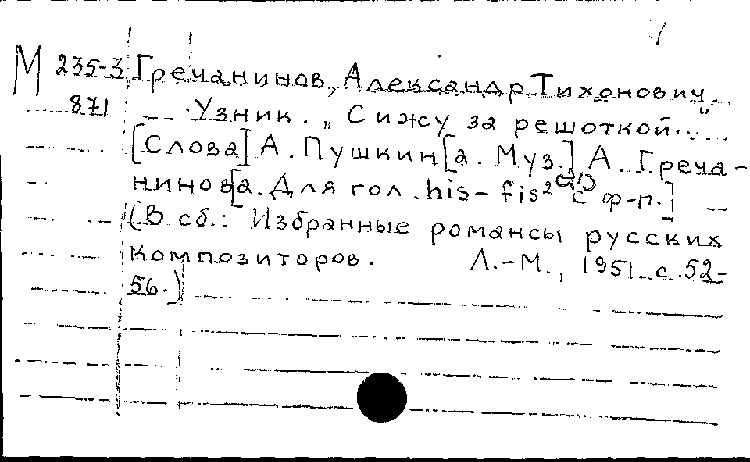 М 235-3 Гречанинов, Александр Тихонович.
871 Узник. „Сижу за решоткой..."
[Слова] А. Пушкин[а. Муз.] А. Греча-
нинов[а. Для гол. his-fis² с ф-п.]
(В сб.: Избранные романсы русских
композиторов. Л.-М., 1951 с. 52-
56.)